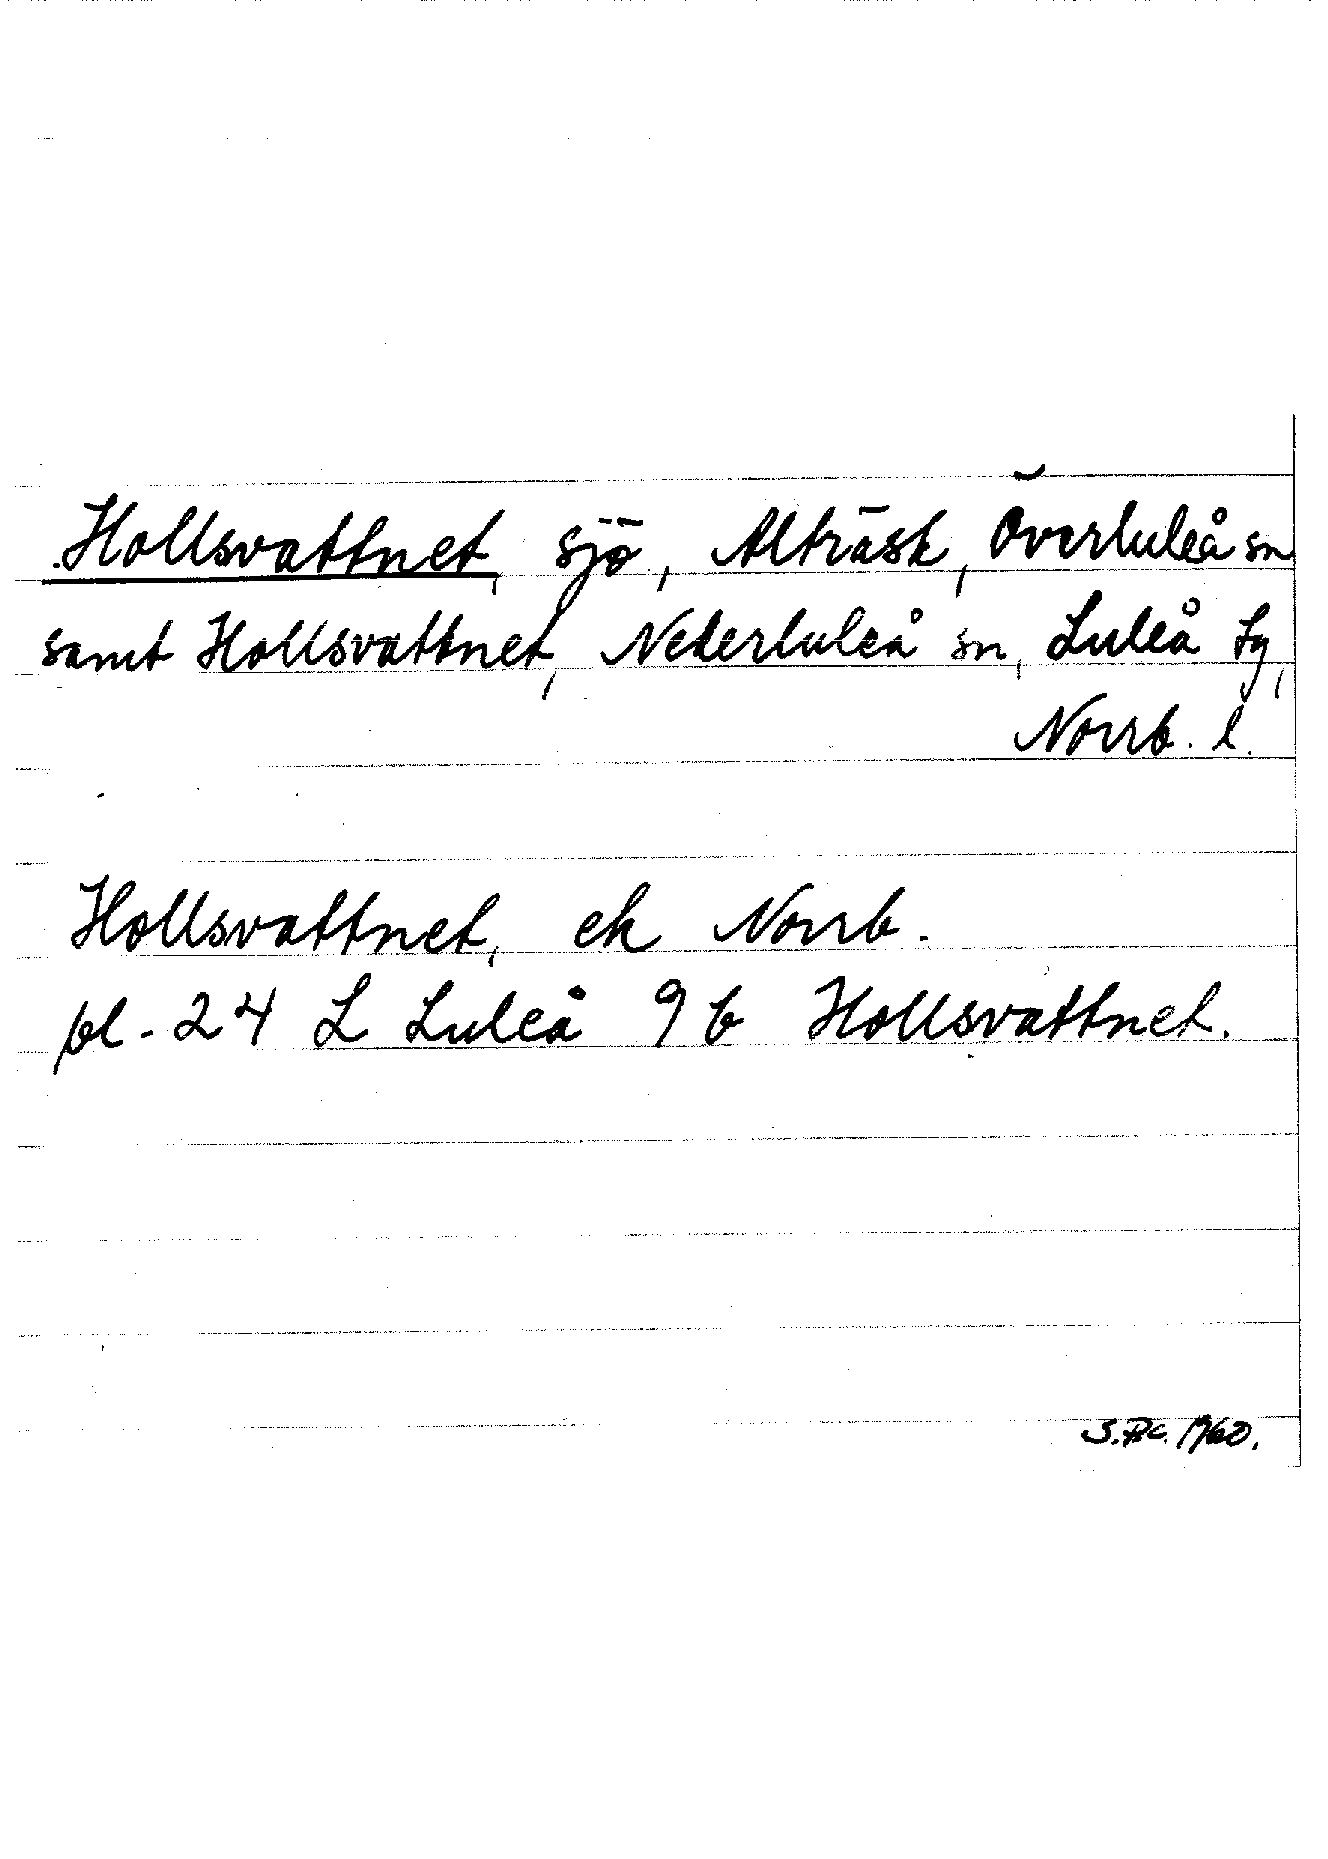 Hollsvattnet, sjö, Alträsk, Överluleå sn
samt Hollsvattnet, Nederluleå sn, Luleå tg,
Norrb. l.
Hollsvattnet, ek Norrb.
bl. 24 L Luleå 9 b Hollsvattnet.
1960.